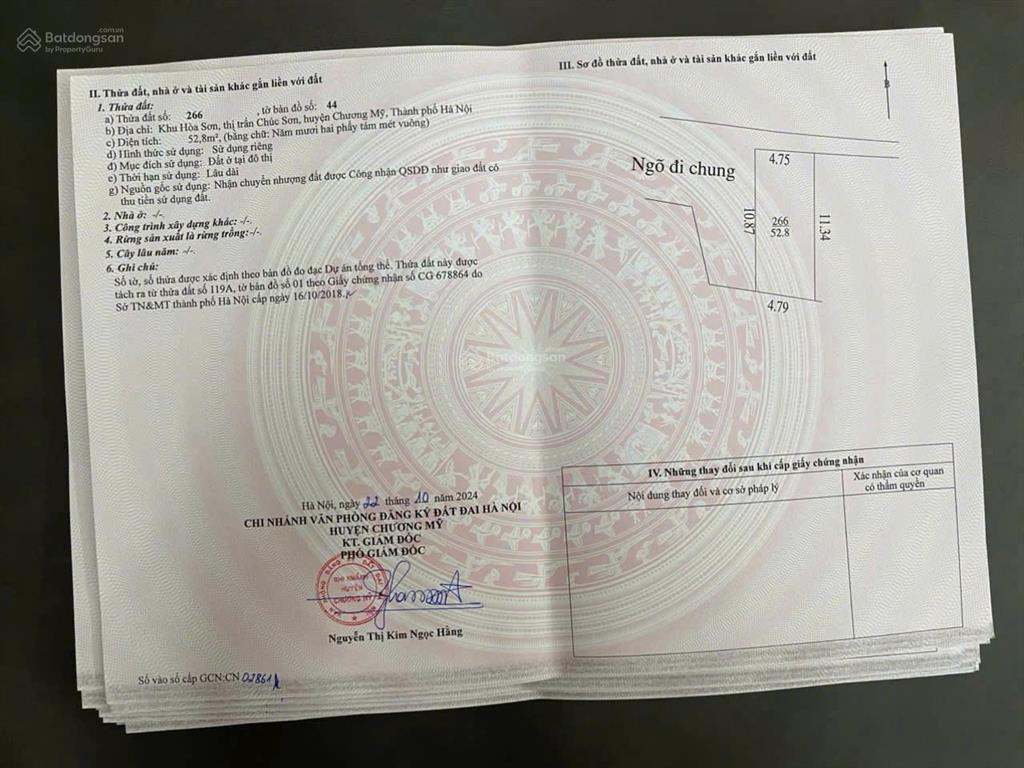 Batdongsan.com.vn
by PropertyGuru
II. Thửa đất, nhà ở và tài sản khác gắn liền với đất
1. Thửa đất:
a) Thửa đất số: 266 , tờ bản đồ số: 44
b) Địa chỉ: Khu Hòa Sơn, thị trấn Chúc Sơn, huyện Chương Mỹ, Thành phố Hà Nội
c) Diện tích: 52,8m², (bằng chữ: Năm mươi hai phẩy tám mét vuông)
d) Hình thức sử dụng: Sử dụng riêng
đ) Mục đích sử dụng: Đất ở tại đô thị
e) Thời hạn sử dụng: Lâu dài
g) Nguồn gốc sử dụng: Nhận chuyển nhượng đất được Công nhận QSDĐ như giao đất có
thu tiền sử dụng đất.
2. Nhà ở: -/-.
3. Công trình xây dựng khác: -/-.
4. Rừng sản xuất là rừng trồng:-/-.
5. Cây lâu năm: -/-.
6. Ghi chú:
Số tờ, số thửa được xác định theo bản đồ đo đạc Dự án tổng thể. Thửa đất này được
tách ra từ thửa đất số 119A, tờ bản đồ số 01 theo Giấy chứng nhận số CG 678864 do
Sở TN&MT thành phố Hà Nội cấp ngày 16/10/2018.
Hà Nội, ngày 22 tháng 10 năm 2024
CHI NHÁNH VĂN PHÒNG ĐĂNG KÝ ĐẤT ĐAI HÀ NỘI
HUYỆN CHƯƠNG MỸ
KT. GIÁM ĐỐC
PHÓ GIÁM ĐỐC
CHI NHÁNH
HUYỆN
CHƯƠNG MỸ
Nguyễn Thị Kim Ngọc Hằng
Số vào sổ cấp GCN:CN 02861
III. Sơ đồ thửa đất, nhà ở và tài sản khác gắn liền với đất
B
Ngõ đi chung
4.75
10.87
266
52.8
11.34
4.79
Batdongsan
IV. Những thay đổi sau khi cấp giấy chứng nhận
Nội dung thay đổi và cơ sở pháp lý
Xác nhận của cơ quan
có thẩm quyền